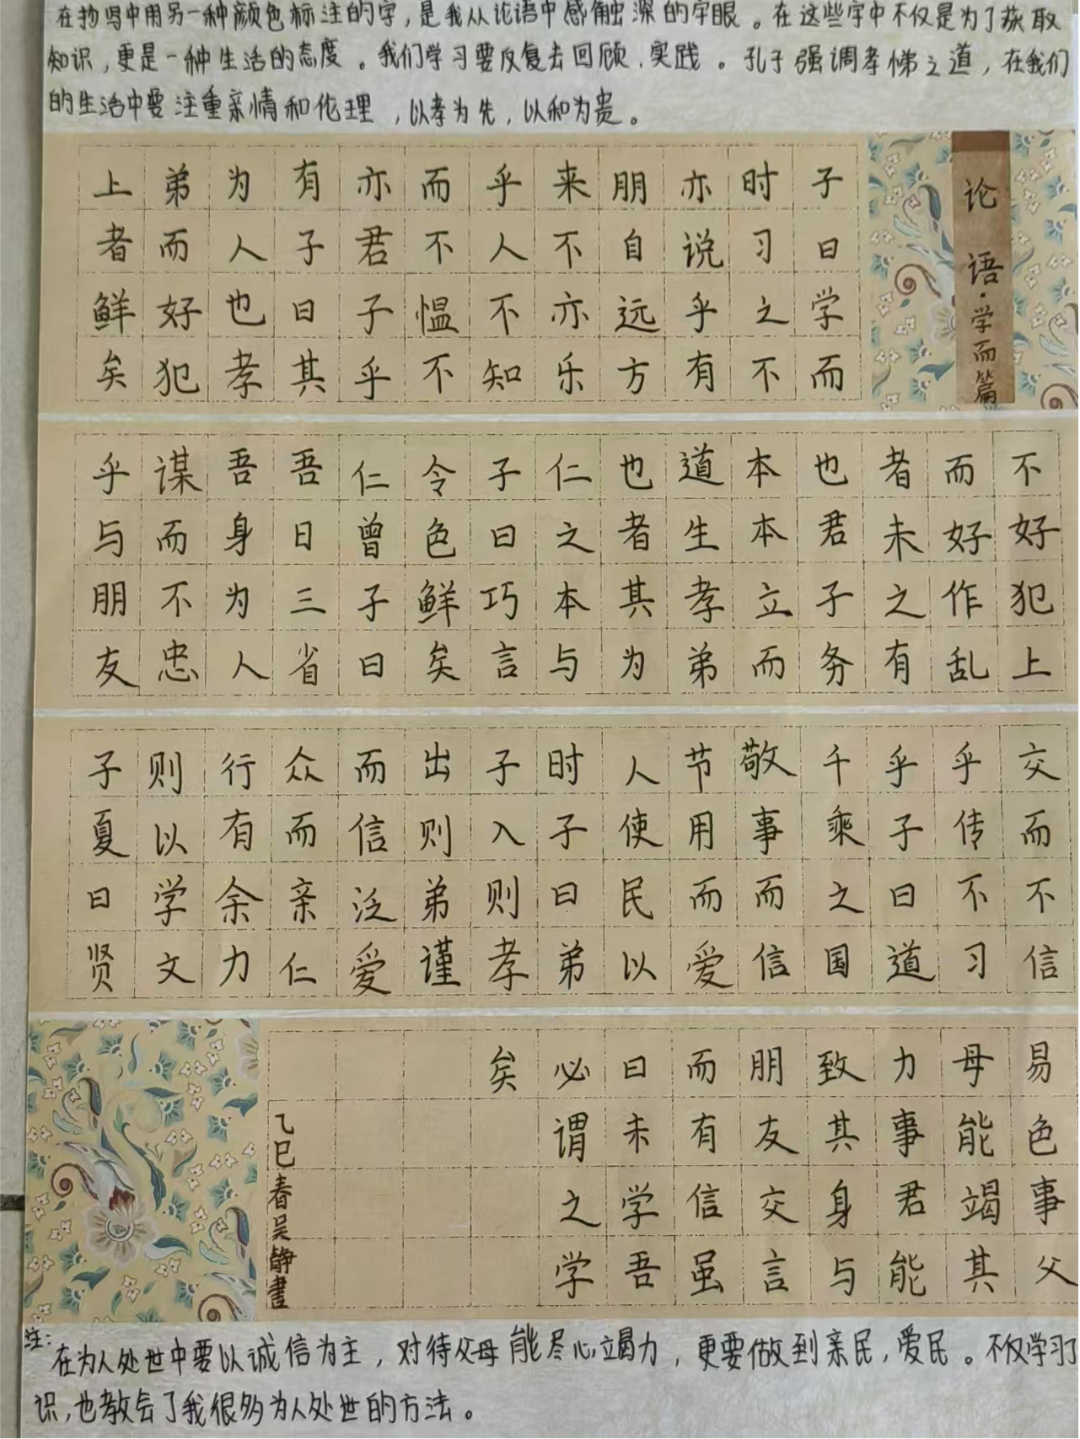 在抄写中用另一种颜色标注的字，是我从论语中感触深的字眼。在这些字中不仅是为了获取
知识，更是一种生活的态度。我们学习要反复去回顾、实践。孔子强调孝悌之道，在我们
的生活中要注重亲情和伦理，以孝为先，以和为贵。
论语·学而篇
子曰学而
时习之不
亦说乎有
朋自远方
来不亦乐
乎人不知
而不愠不
亦君子乎
有子曰其
为人也孝
弟而好犯
上者鲜矣
不好犯上
而好作乱
者未之有
也君子务
本本立而
道生孝弟
也者其为
仁之本与
子曰巧言
令色鲜矣
仁曾子曰
吾日三省
吾身为人
谋而不忠
乎与朋友
交而不信
乎传不习
乎子曰道
千乘之国
敬事而信
节用而爱
人使民以
时子曰弟
子入则孝
出则弟谨
而信泛爱
众而亲仁
行有余力
则以学文
子夏曰贤
易色事父
母能竭其
力事君能
致其身与
朋友交言
而有信虽
曰未学吾
必谓之学
矣
乙巳春吴静書
注：在为人处世中要以诚信为主，对待父母能尽心竭力，更要做到亲民，爱民。不仅学习了
识，也教会了我很多为人处世的方法。